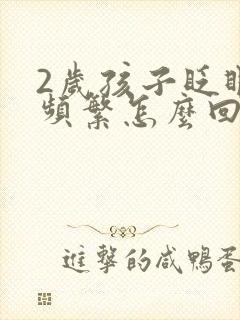 2歲孩子眨眼
頻繁怎麼回
進擊的咸鴨蛋